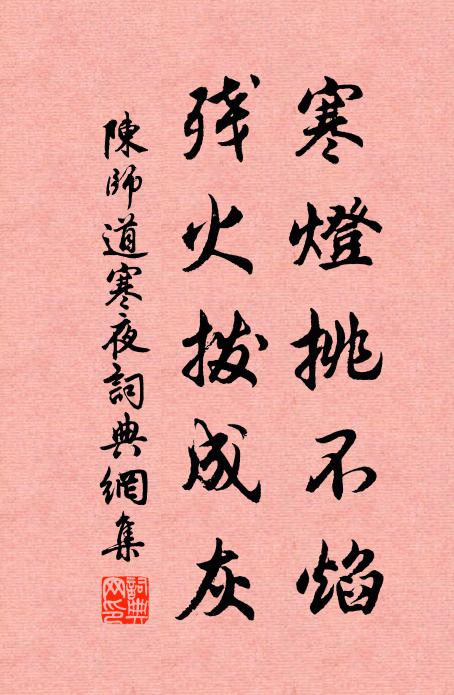 寒燈挑不焰
残火拨成灰
陳師道寒夜詞典網集
詞典网印